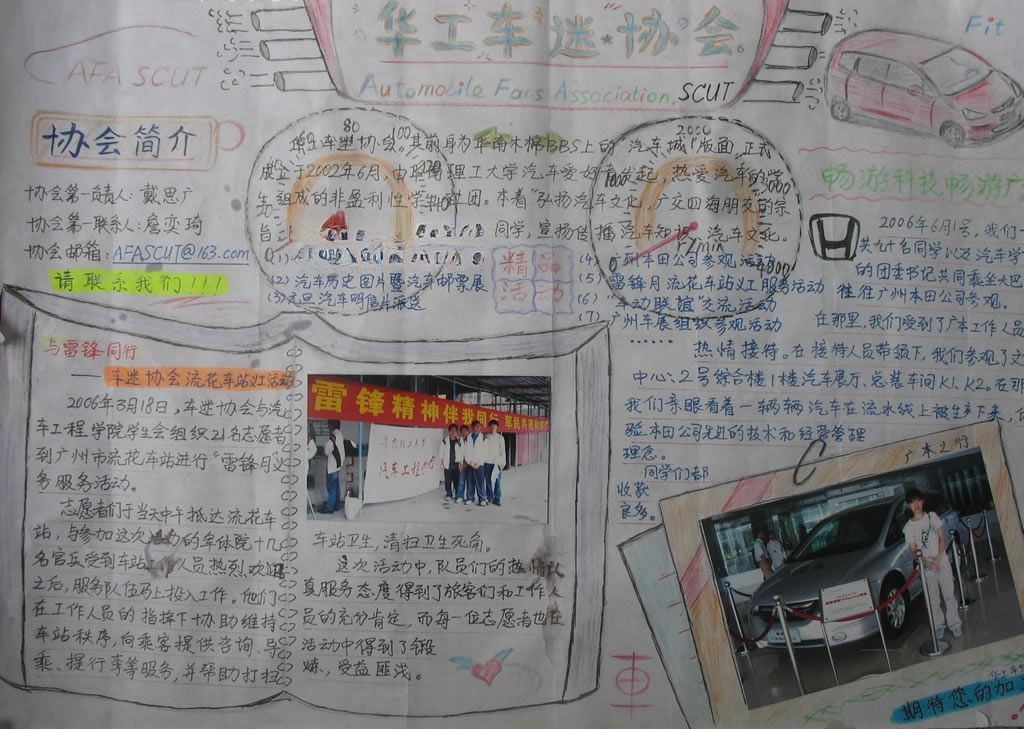 华工车迷协会
Automobile Fans Association, SCUT
AFA SCUT
Fit
协会简介
协会第一负责人：戴思广
协会第一联系人：詹奕琦
协会邮箱：AFASCUT@163.com
请联系我们！！！
80
100
2000
3000
4000
r/min
华工车迷协会，其前身为华南木棉BBS上的“汽车城”版面，正式
成立于2002年6月，由华南理工大学汽车爱好者发起，热爱汽车的学
生组成的非盈利性学生社团。本着“弘扬汽车文化，广交四海朋友的宗
旨
同学，宣扬传播汽车知识，汽车文化。
精品
活动
(1)
(2) 汽车历史图片暨汽车邮票展
(3) 元旦汽车明信片派送
(4) 广州本田公司参观活动
(5) 雷锋月流花车站义工服务活动
(6) “车动联谊”交流活动
(7) 广州车展组织参观活动
……
与雷锋同行
——车迷协会流花车站义工活动
2006年3月18日，车迷协会与汽
车工程学院学生会组织21名志愿者
到广州市流花车站进行“雷锋月”义
务服务活动。
志愿者们于当天中午抵达流花车
站，与参加这次活动的军体院十几
名官兵受到车站工作人员热烈欢迎
之后，服务队伍马上投入工作。他们
在工作人员的指挥下协助维持
车站秩序，向乘客提供咨询、导
乘、提行李等服务，并帮助打扫
雷锋精神伴我同行
汽车工程学院
车站卫生，清扫卫生死角。
这次活动中，队员们的热情认
真服务态度得到了旅客们和工作人
员的充分肯定，而每一位志愿者也在
活动中得到了锻
炼，受益匪浅。
车
畅游科技 畅游广
2006年6月1号，我们一
共九十名同学以及汽车学
的团委书记共同乘坐大巴
往往广州本田公司参观。
在那里，我们受到了广本工作人员
热情接待。在接待人员带领下，我们参观了文
中心：2号综合楼1楼汽车展厅、总装车间K1、K2。在那
我们亲眼看着一辆辆汽车在流水线上被生产下来，体
验本田公司先进的技术和经营管理
理念。
同学们都
收获
良多。
广本之行
期待您的加